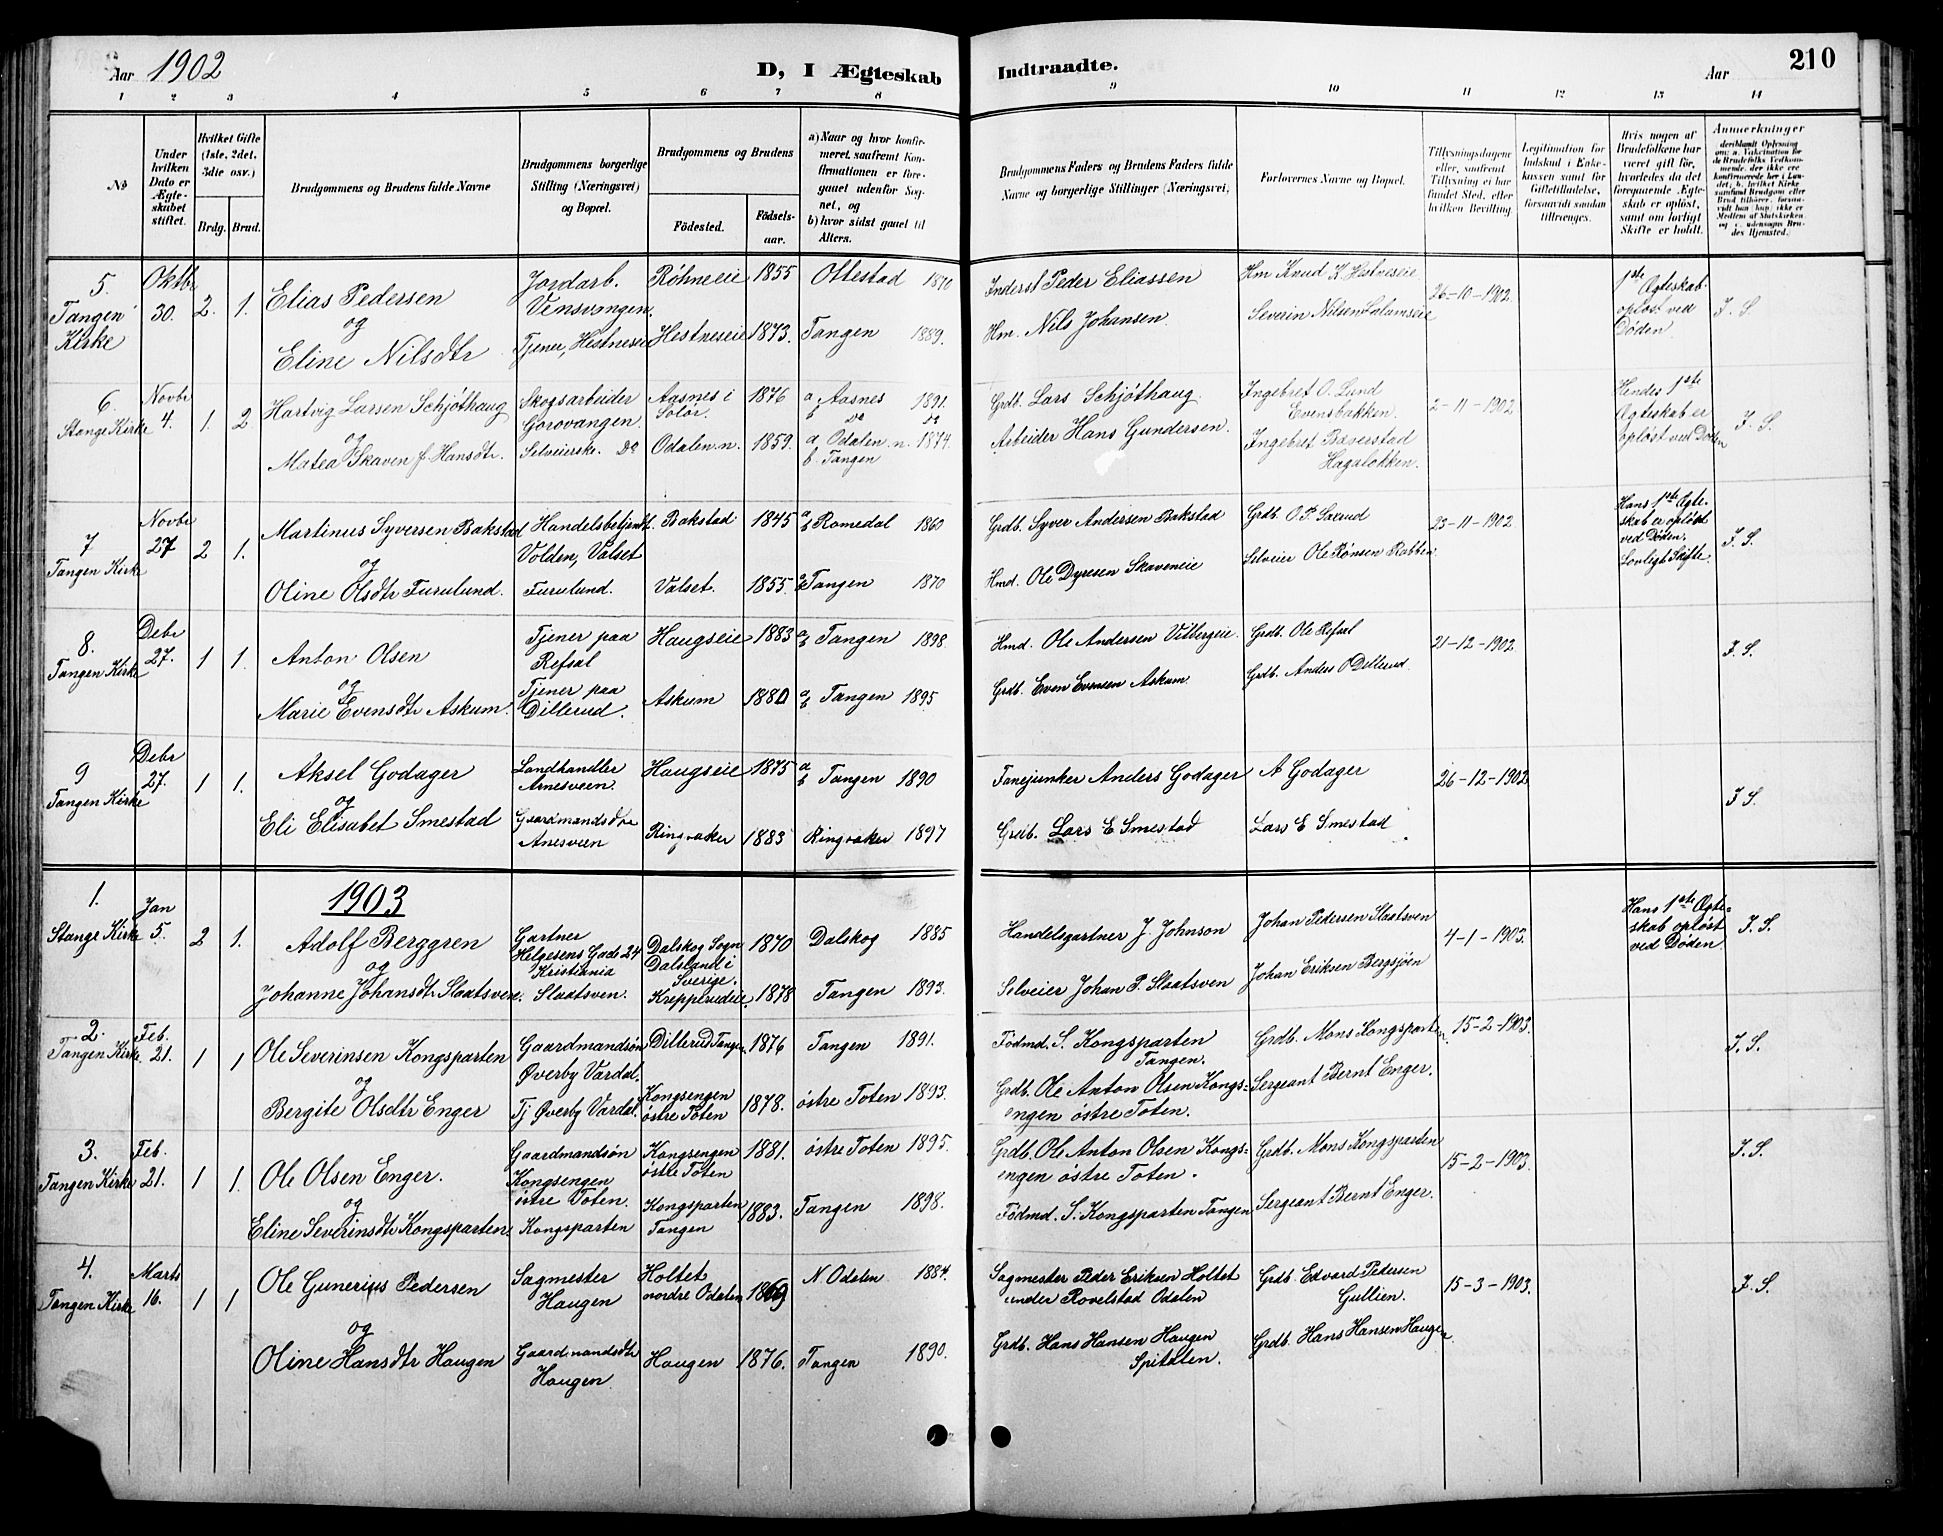 Aar 1902
D, I Ægteskab Indtraadte.
Aar
210
1 2 3 4 5 6 7 8 9 10 11 12 13 14
No
Under hvilken Dato er Ægteskabet stiftet.
Hvilket Gifte (1ste, 2det, 3die osv.)
Brdg. Brud.
Brudgommens og Brudens fulde Navne
Brudgommens borgerlige Stilling (Næringsvei) og Bopæl.
Brudgommens og Brudens
Fødested.
Fødsels-aar.
a) Naar og hvor konfirmeret, saafremt Konfirmationen er foregaaet udenfor Sognet, og
b) hvor sidst gaaet til Alters.
Brudgommens Faders og Brudens Faders fulde Navne og borgerlige Stillinger (Næringsvei,
Forlovernes Navne og Bopæl.
Tillysningsdagene eller, saafremt Tillysning ei har fundet Sted, efter hvilken Bevilling.
Legitimation for Indskud i Enkekassen samt for Giftetilladelse, forsaavidt saadan tiltrænges.
Hvis nogen af Brudefolkene har været gift før, hvorledes da det foregaaende Ægteskab er opløst, samt om lovligt Skifte er holdt.
Anmerkninger
5. Tangen Kirke
Oktbr 30.
2. 1.
Elias Pedersen
og
Eline Nilsdtr
Jordarb. Vensvangen.
Tjener, Hestneseie
Røhneeie 1855 Ottestad 1870
Hestneseie 1873. Tangen 1889.
Inderst Peder Eliassen
Hm. Nils Johansen.
Hm Knud K. Hestneseie
Severin Nilsen
26-10-1902.
1ste Ægteskab opløst ved Døden.
J. S.
6. Stange Kirke
Novbr 4.
1. 2
Hartvig Larsen Schjøthaug
og
Matea Skaven f. Hansdtr.
Skogsarbeider Gorovangen.
Selveierske. Do
Aasnes i Solør. 1876 a Aasnes 1891.
b Do Do
Odalen. n. 1859. a Odalen. n. 1874.
b. Tangen
Grdb. Lars Schjøthaug.
Arbeider Hans Gundersen.
Ingebret O. Lund Evensbakken.
Ingebret Bæverstad Hagaløkken.
2-11-1902.
Hendes 1ste Ægteskab er opløst ved Døden
J. S.
7 Tangen Kirke
Novbr 27
2 1.
Martinus Syversen Bakstad
og
Oline Olsdtr Furulund.
Handelsbetjendt. Volden, Valset
Furulund.
Bakstad 1845 a b Romedal 1860
Valset. 1855. Tangen 1870
Grdb. Syver Andersen Bakstad
Hmd. Ole Dyresen Skaveneie
Grdb. O. P. Saxrud
Selveier Ole Rønsen Rabben
23-11-1902
Hans 1ste Ægteskab er opløst ved Døden. Lovligt Skifte.
J. S.
8. Tangen Kirke
Debr 27.
1 1.
Anton Olsen
og
Marie Evensdtr Askum.
Tjener paa Refsal
Tjener paa Dillerud.
Haugseie 1883 a b Tangen 1898.
Askum 1880 a b Tangen 1895
Hmd. Ole Andersen Vitbergeie.
Grdb. Even Evensen Askum
Grdb. Ole Refsal
Grdb. Anders O Dillerud.
21-12-1902.
J. S.
9 Tangen Kirke
Debr 27.
1 1.
Aksel Godager
og
Eli Elisabet Smestad
Landhandler Arnesveen.
Gaardmandsdtr Anesveen
Haugseie 1875 a b Tangen 1890
Ringsaker 1883 Ringsaker 1897
Fanejunker Anders Godager
Grdb. Lars E Smestad
A Godager
Lars E Smestad
26-12-1902.
J. S.
1903
1. Stange Kirke
Jan 5.
2 1.
Adolf Berggren
og
Johanne Johansdtr Slaatsven.
Gartner Helgesens Gade 24 Kristiania
Slaatsven.
Dalskog Sogn Dalsland i Sverige. 1870 Dalskog 1885
Kreppereideie. 1878 Tangen 1893.
Handelsgartner J. Johnson
Selveier Johan P. Slaatsven
Johan Pedersen Slaatsven
Johan Eriksen Bergsjøen
4-1-1903.
Hans 1ste Ægteskab opløst ved Døden
J. S.
2. Tangen Kirke.
Feb. 21.
1 1
Ole Severinsen Kongsparten
og
Bergite Olsdtr Enger
Gaardmandsøn Øverby Vardal.
Tj Øverby Vardal.
Dillerud Tangen. 1876 Tangen 1891.
Kongsengen østre Toten 1878. østre Toten 1893.
Födmd. S. Kongsparten Tangen.
Grdb. Ole Anton Olsen Kongsengen østre Toten.
Grdb. Mons Kongsparten.
Sergeant Bernt Enger.
15-2-1903.
J. S.
3. Tangen Kirke
Feb. 21.
1 1.
Ole Olsen Enger.
og
Eline Severinsdtr Kongsparten.
Gaardmandsøn Kongsengen østre Toten.
Kongsparten
Kongsengen østre Toten 1881. østre Toten 1895.
Kongsparten Tangen 1883. Tangen 1898.
Grdb. Ole Anton Olsen Kongsengen østre Toten.
Födmd. S. Kongsparten Tangen
Grdb. Mons Kongsparten
Sergeant Bernt Enger.
15-2-1903.
J. S.
4. Tangen Kirke
Marts 16.
1 1
Ole Gunerius Pedersen
og
Oline Hansdtr Haugen
Sagmester Haugen
Gaardmandsdtr Haugen
Holtet nordre Odalen 1869 N. Odalen 1884.
Haugen 1876. Tangen 1890.
Sagmester Peder Eriksen Holtet under Rovelstad Odalen
Grdb. Hans Hansen Haugen Spitalen.
Grdb. Edvard Pedersen Gullien.
Grdb. Hans Hansen Haugen.
15-3-1903.
J. S.